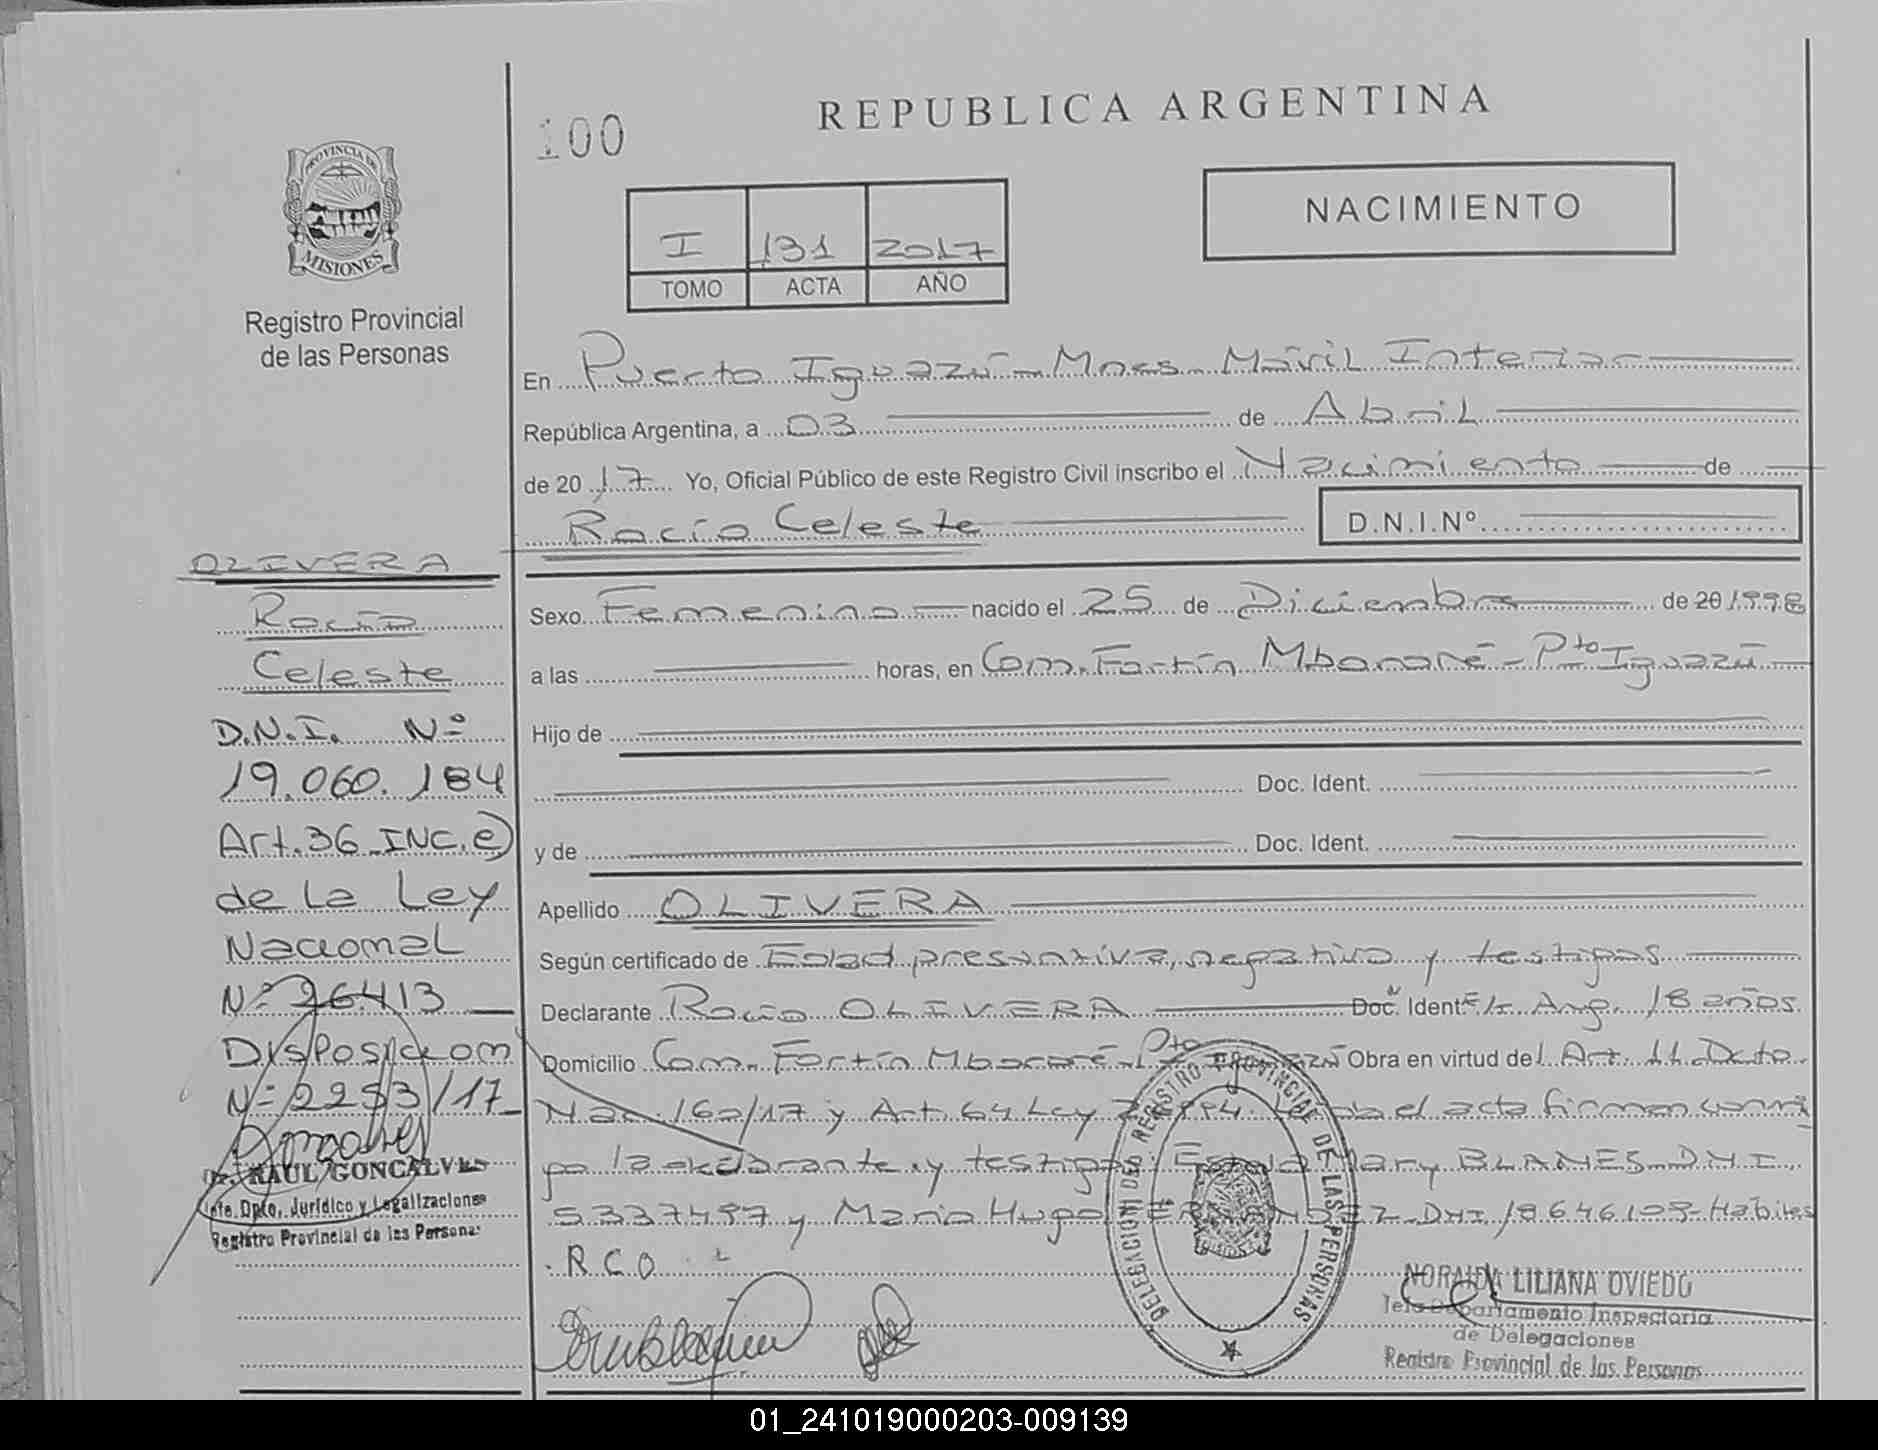 REPUBLICA ARGENTINA
100
NACIMIENTO
PROVINCIA DE
MISIONES
I 131 2017
TOMO ACTA AÑO
Registro Provincial
de las Personas
En Puerto Iguazú - Mnes. Móvil Interior
República Argentina, a 03 de Abril
de 2017 Yo, Oficial Público de este Registro Civil inscribo el Nacimiento de
Rocío Celeste D.N.I.Nº
OLIVERA
Rocío
Celeste
D.N.I. Nº
19.060.184
Art. 36 INC. e)
de la Ley
Nacional
Nº 26413
Disposicion
Nº 2253/17
Dr. RAUL GONCALVES
Jefe. Dpto. Jurídico y Legalizaciones
Registro Provincial de las Personas
Sexo Femenino nacido el 25 de Diciembre de 20 1998
a las horas, en Com. Fortín Mbororé - Pto Iguazú
Hijo de
Doc. Ident.
y de Doc. Ident.
Apellido OLIVERA
Según certificado de Edad presuntiva, negativo y testigos
Declarante Rocío OLIVERA Doc. Ident. Arg. 18 años.
Domicilio Com. Fortín Mbororé - Pto Iguazú Obra en virtud del Art. 11 Dcto.
Nac. 160/17 y Art. 64 Ley el acta firman conmi
go la declarante y testigos: Mary BLANES DNI
5337497 y Maria Hugo DNI 18646103 Hábiles
R C O
DELEGACION DEL REGISTRO PROVINCIAL DE LAS PERSONAS
NORAIDA LILIANA OVIEDO
Jefe Departamento Inspectoria
de Delegaciones
Registro Provincial de las Personas
01_241019000203-009139